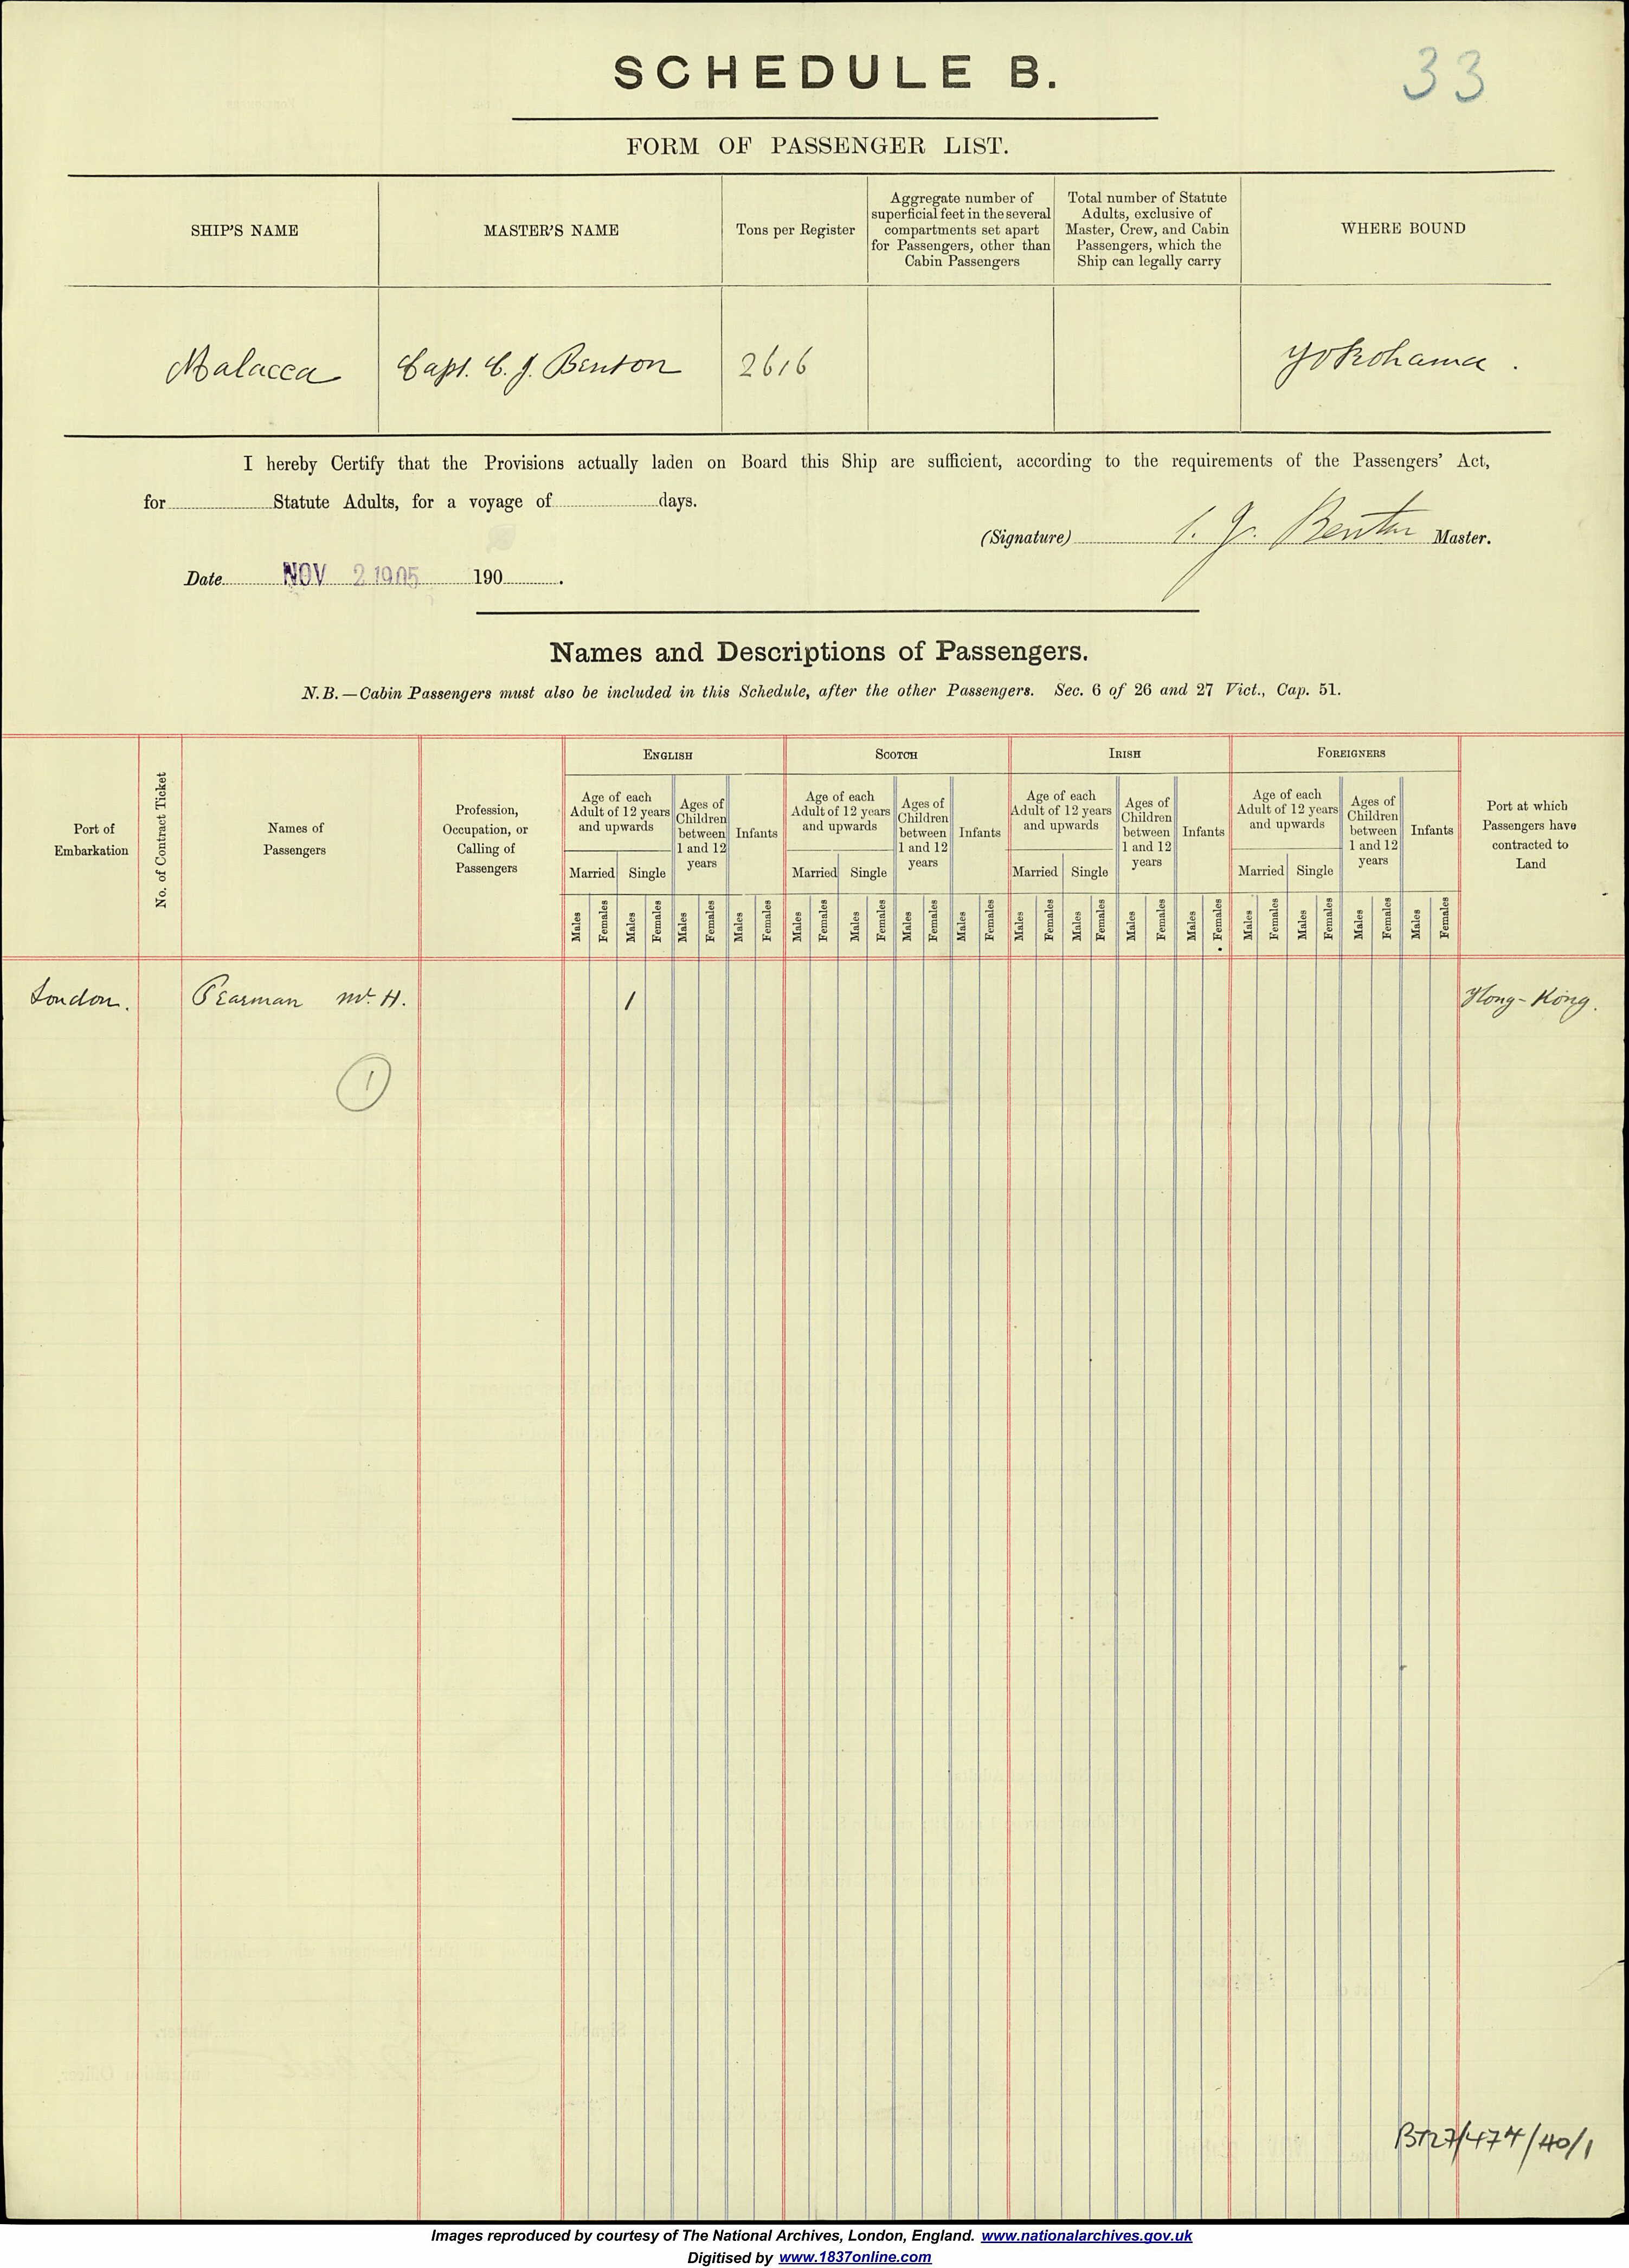 SCHEDULE B.
33
FORM OF PASSENGER LIST.
SHIP'S NAME
MASTER'S NAME
Tons per Register
Aggregate number of
superficial feet in the several
compartments set apart
for Passengers, other than
Cabin Passengers
Total number of Statute
Adults, exclusive of
Master, Crew, and Cabin
Passengers, which the
Ship can legally carry
WHERE BOUND
Malacca
Capt. C. J. Benton
2616
Yokohama.
I hereby Certify that the Provisions actually laden on Board this Ship are sufficient, according to the requirements of the Passengers' Act,
for Statute Adults, for a voyage of days.
(Signature) C. J. Benton Master.
Date NOV 2 1905 190 .
Names and Descriptions of Passengers.
N.B.—Cabin Passengers must also be included in this Schedule, after the other Passengers. Sec. 6 of 26 and 27 Vict., Cap. 51.
Port of
Embarkation
No. of Contract Ticket
Names of
Passengers
Profession,
Occupation, or
Calling of
Passengers
ENGLISH
Age of each
Adult of 12 years
and upwards
Married
Single
Ages of
Children
between
1 and 12
years
Infants
Males
Females
Males
Females
Males
Females
Males
Females
SCOTCH
Age of each
Adult of 12 years
and upwards
Married
Single
Ages of
Children
between
1 and 12
years
Infants
Males
Females
Males
Females
Males
Females
Males
Females
IRISH
Age of each
Adult of 12 years
and upwards
Married
Single
Ages of
Children
between
1 and 12
years
Infants
Males
Females
Males
Females
Males
Females
Males
Females
FOREIGNERS
Age of each
Adult of 12 years
and upwards
Married
Single
Ages of
Children
between
1 and 12
years
Infants
Males
Females
Males
Females
Males
Females
Males
Females
Port at which
Passengers have
contracted to
Land
London. Pearman Mr. H. 1 Hong-Kong.
1
BT27/474/40/1
Images reproduced by courtesy of The National Archives, London, England. www.nationalarchives.gov.uk
Digitised by www.1837online.com